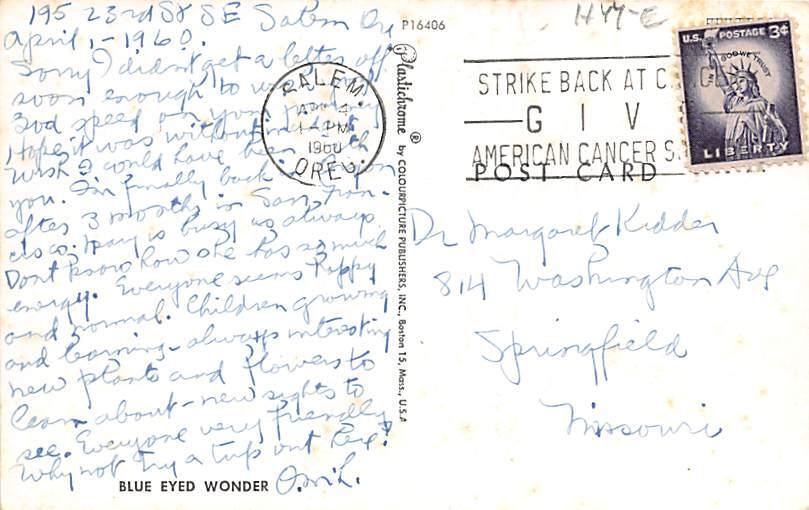 195 23rd St SE Salem Ore
April 1 - 1960.
Sorry I didn't get a letter off
soon enough to
God speed on your
Hope it was without
Wish I could have been with
you. I'm finally back in
after 3 months in San Fran-
cisco. Mary is busy as always
Dont know how she has so much
energy. Everyone seems happy
and normal. Children growing
and learning - always interesting
new plants and flowers to
learn about - new sights to
see. Everyone very friendly
Why not try a trip out here?
BLUE EYED WONDER
P16406
Plastichrome ® by COLOURPICTURE PUBLISHERS, INC., Boston 15, Mass., U.S.A
SALEM.
APR 4
1 - PM
1960
OREG.
STRIKE BACK AT C
G I V
AMERICAN CANCER S
POST CARD
U.S. POSTAGE 3¢
IN GOD WE TRUST
LIBERTY
Dr Margaret Kidder
814 Washington Ave
Springfield
Missouri